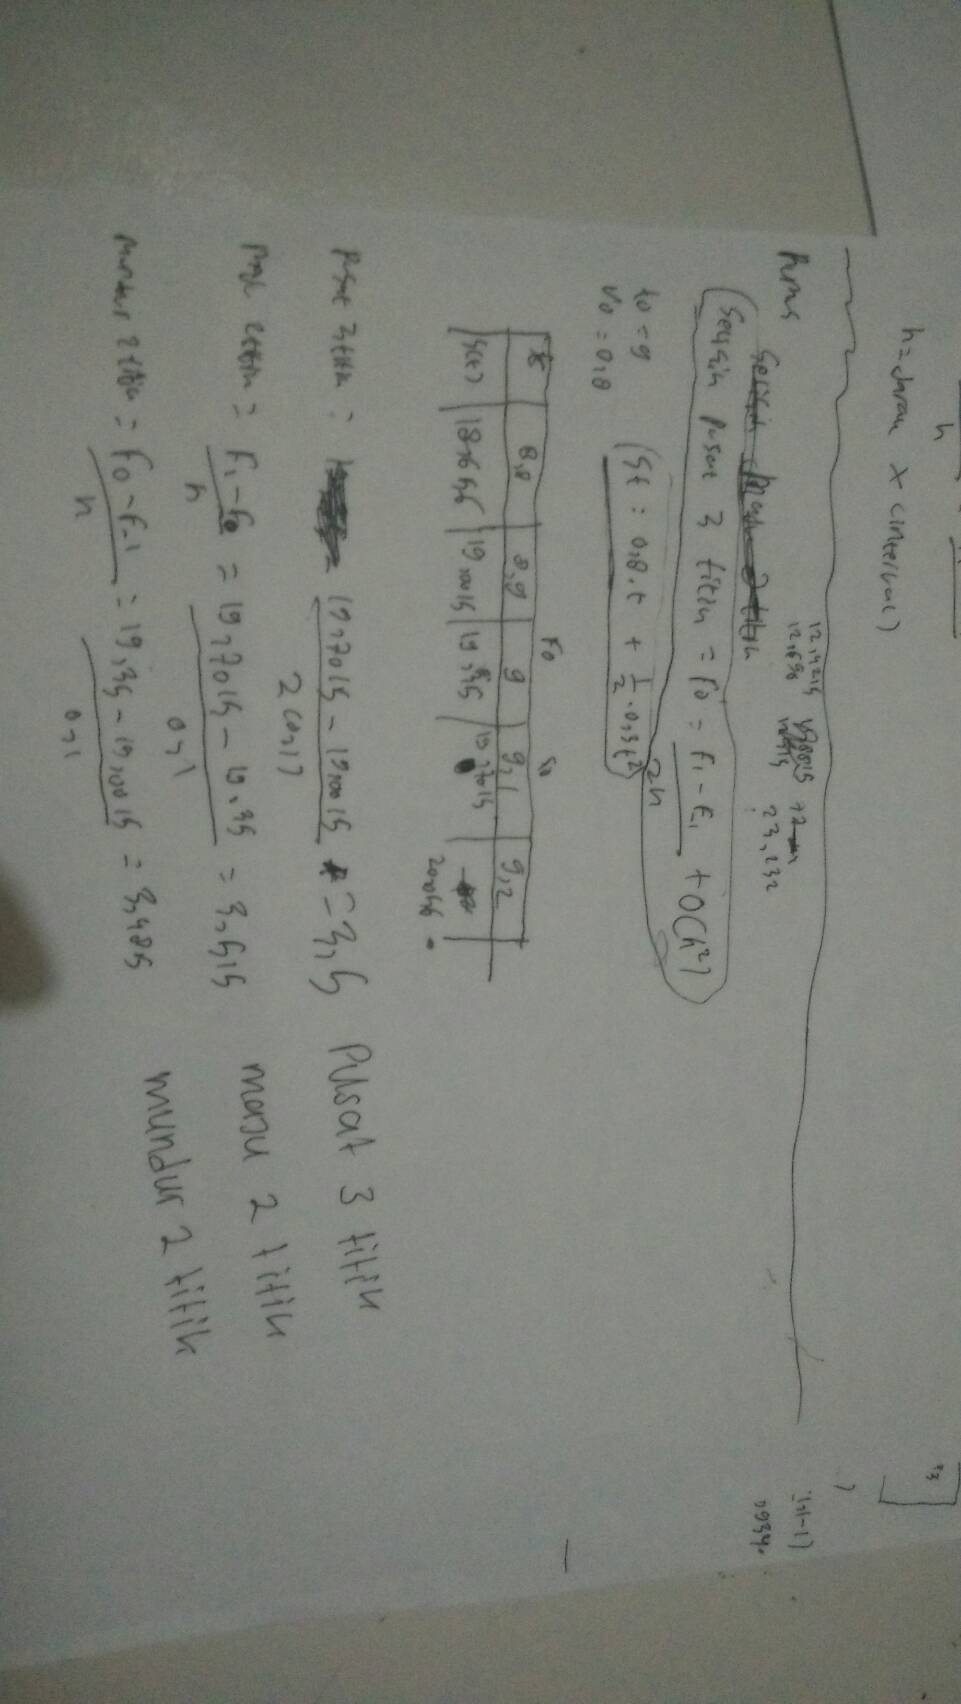 h
h = Jarak x (interval)
Rumus
12,4215
12,696
23,232
Selisih pusat 3 titik = F0 = F1 - F-1 / 2h + O(h²)
t0 = 9
V0 = 0,8
St = 0,8.t + 1/2 . 0,3t²
F0
t 8,8 8,9 9 9,1 9,2
S(t) 18,656 19,0015 19,35 19,7015 20,056
Pusat 3 titik = 19,7015 - 19,0015 / 2(0,1) = 3,5 Pusat 3 titik
Maju 2 titik = F1 - F0 / h = 19,7015 - 19,35 / 0,1 = 3,515 maju 2 titik
Mundur 2 titik = F0 - F-1 / h = 19,35 - 19,0015 / 0,1 = 3,485 mundur 2 titik